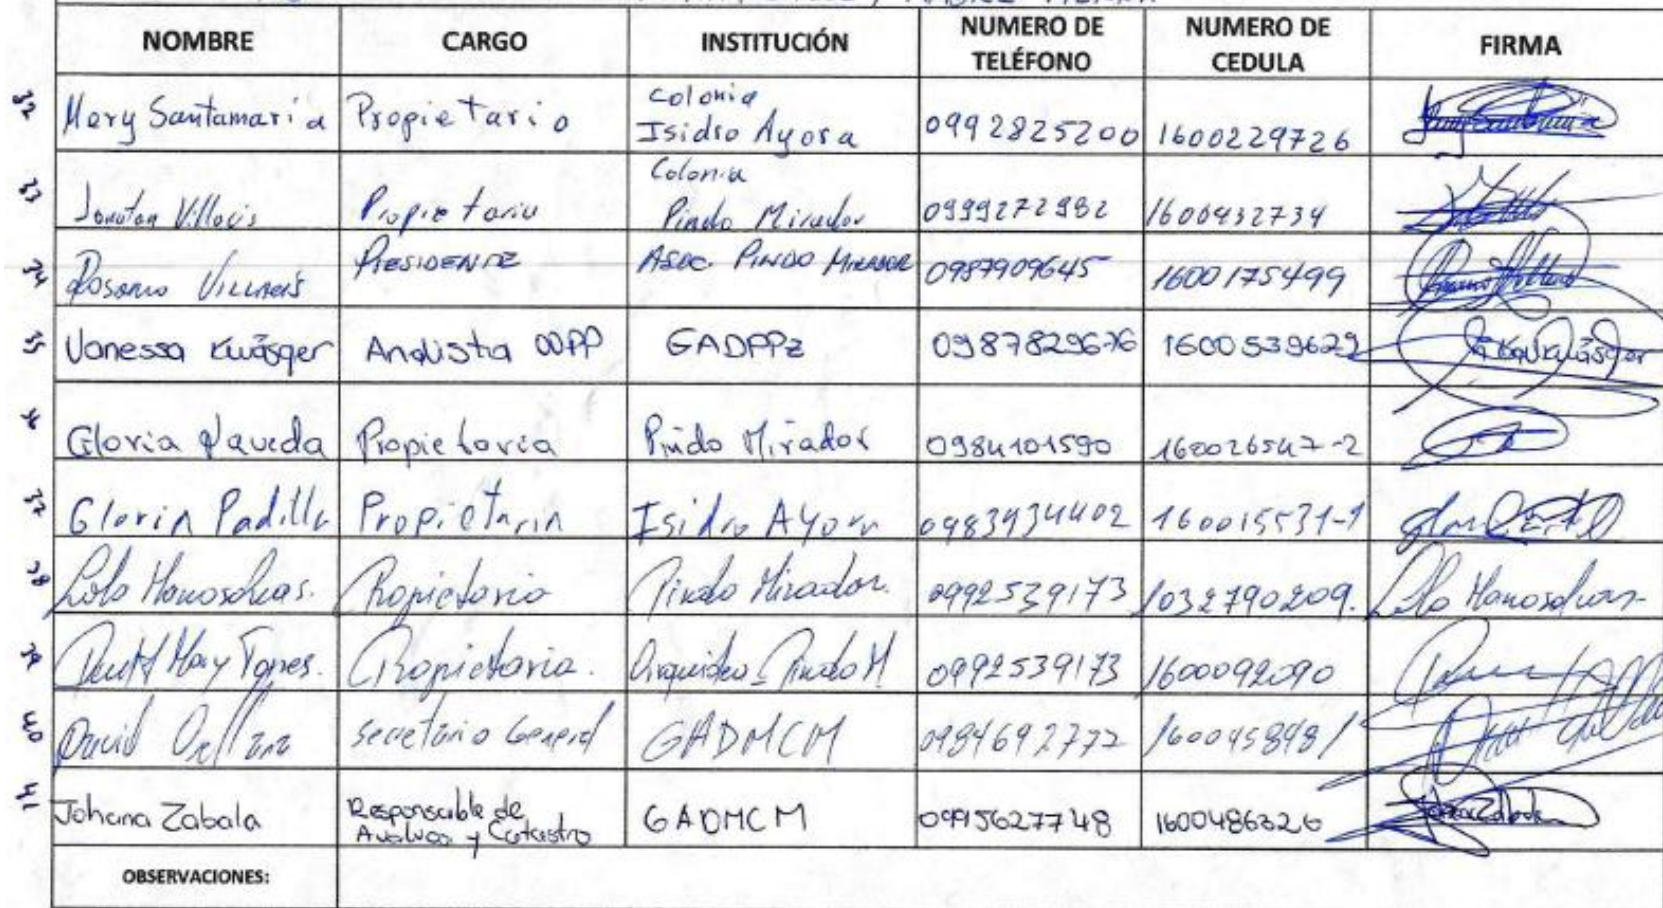 MADRE TIERRA
NOMBRE CARGO INSTITUCIÓN NUMERO DE TELÉFONO NUMERO DE CEDULA FIRMA
32 Mery Santamaria Propietario Colonia Isidro Ayora 0992825200 1600229726
33 Jonatan Villacis Propietario Colonia Pindo Mirador 0999272982 1600432734
34 Rosario Villacis PRESIDENTE ASOC. PINDO MIRADOR 0987909645 1600175499
35 Vanessa Kwásger Analista OOPP GADPPz 0987829676 1600539629
Gloria Propietaria Pindo Mirador 0984101590 160026547-2
37 Gloria Padilla Propietaria Isidro Ayora 0983934402 160015531-1
38 Lolo Manosalvas. Propietario Pindo Mirador. 0992539173 1032790209. Lolo Manosalvas
39 May Torres. Propietaria. Pindo M 0992539173 1600092090
40 David Orellana Secretario General GADMCM 0984692772 1600458481
41 Johana Zabala Responsable de Avaluos y Catastro GADMCM 0995627748 1600486326
OBSERVACIONES: